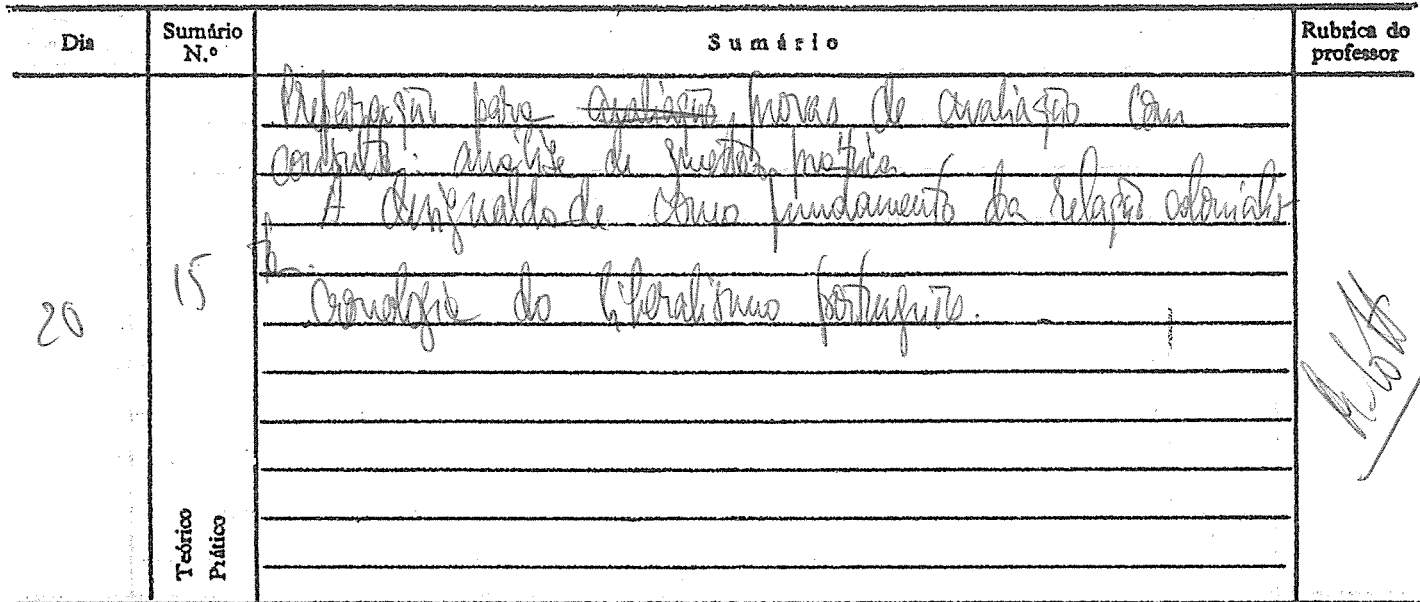 Dia
Sumário N.º
Sumário
Rubrica do professor
Preparação para avaliação provas de avaliação com
consulta: análise de questões prática
A desigualdade como fundamento da relação colonialis-
ta.
Cronologia do liberalismo português.
20
15
Teórico
Prático